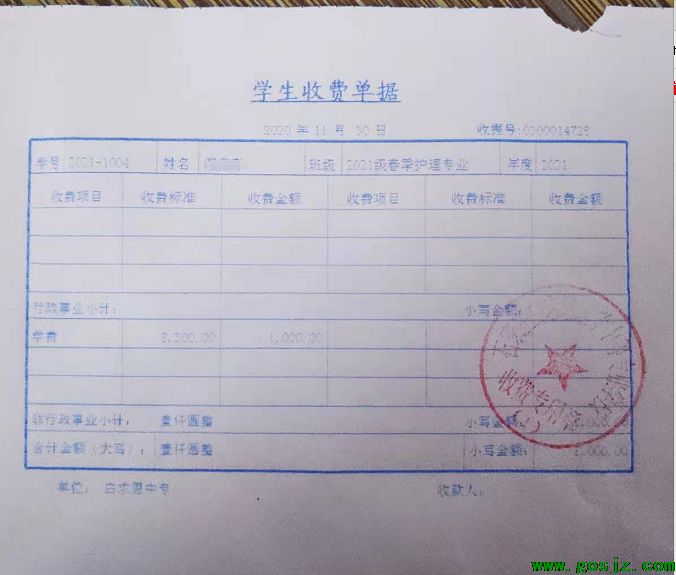 学生收费单据
2020 年 11 月 30 日 收据号:030001472
学号 2021-1004 姓名 班级 2021级春季护理专业 年度 2021
收费项目 收费标准 收费金额 收费项目 收费标准 收费金额
行政事业小计: 小写金额:
学费 ,300.00 1,000.00
非行政事业小计: 壹仟圆整 小写金额: ,000.00
合计金额(大写): 壹仟圆整 小写金额: 1,000.00
单位: 白求恩中专 收款人:
收费专用章
www.gosjz.com